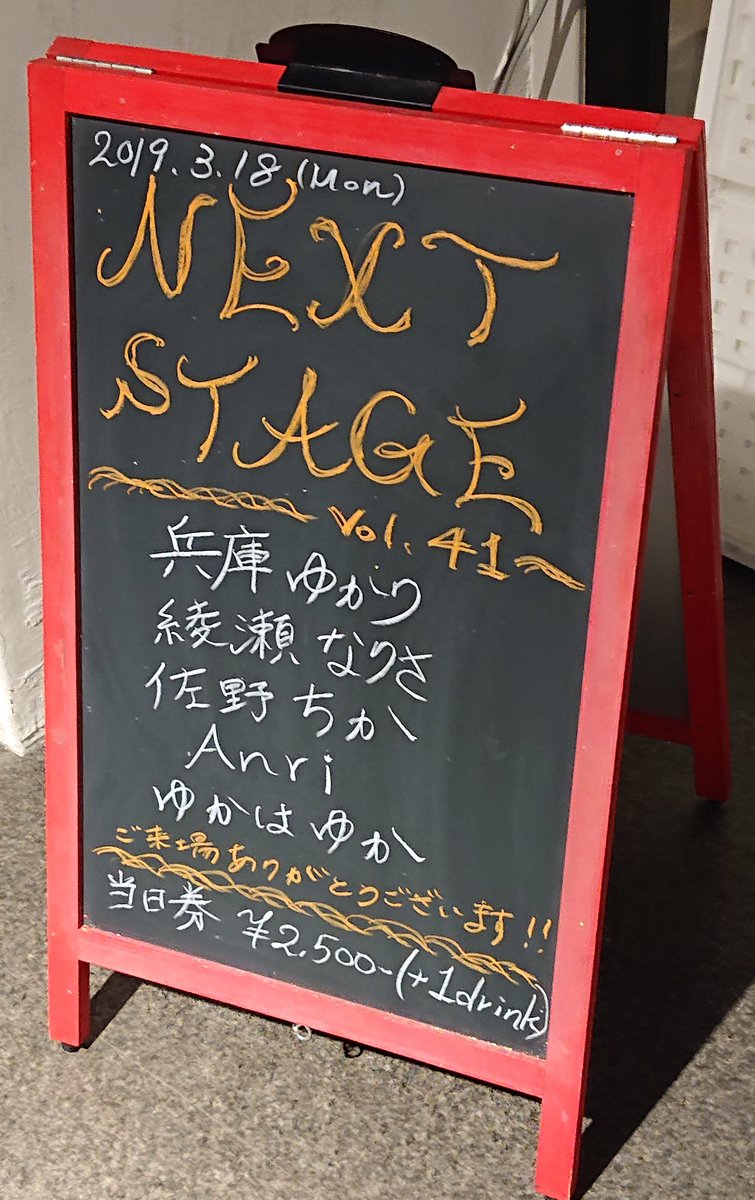 2019.3.18 (Mon)
NEXT
STAGE
Vol. 41~
兵庫 ゆかり
綾瀬 なりさ
佐野 ちか
Anri
ゆかはゆか
ご来場ありがとうございます!!
当日券 ¥2,500-(+1drink)